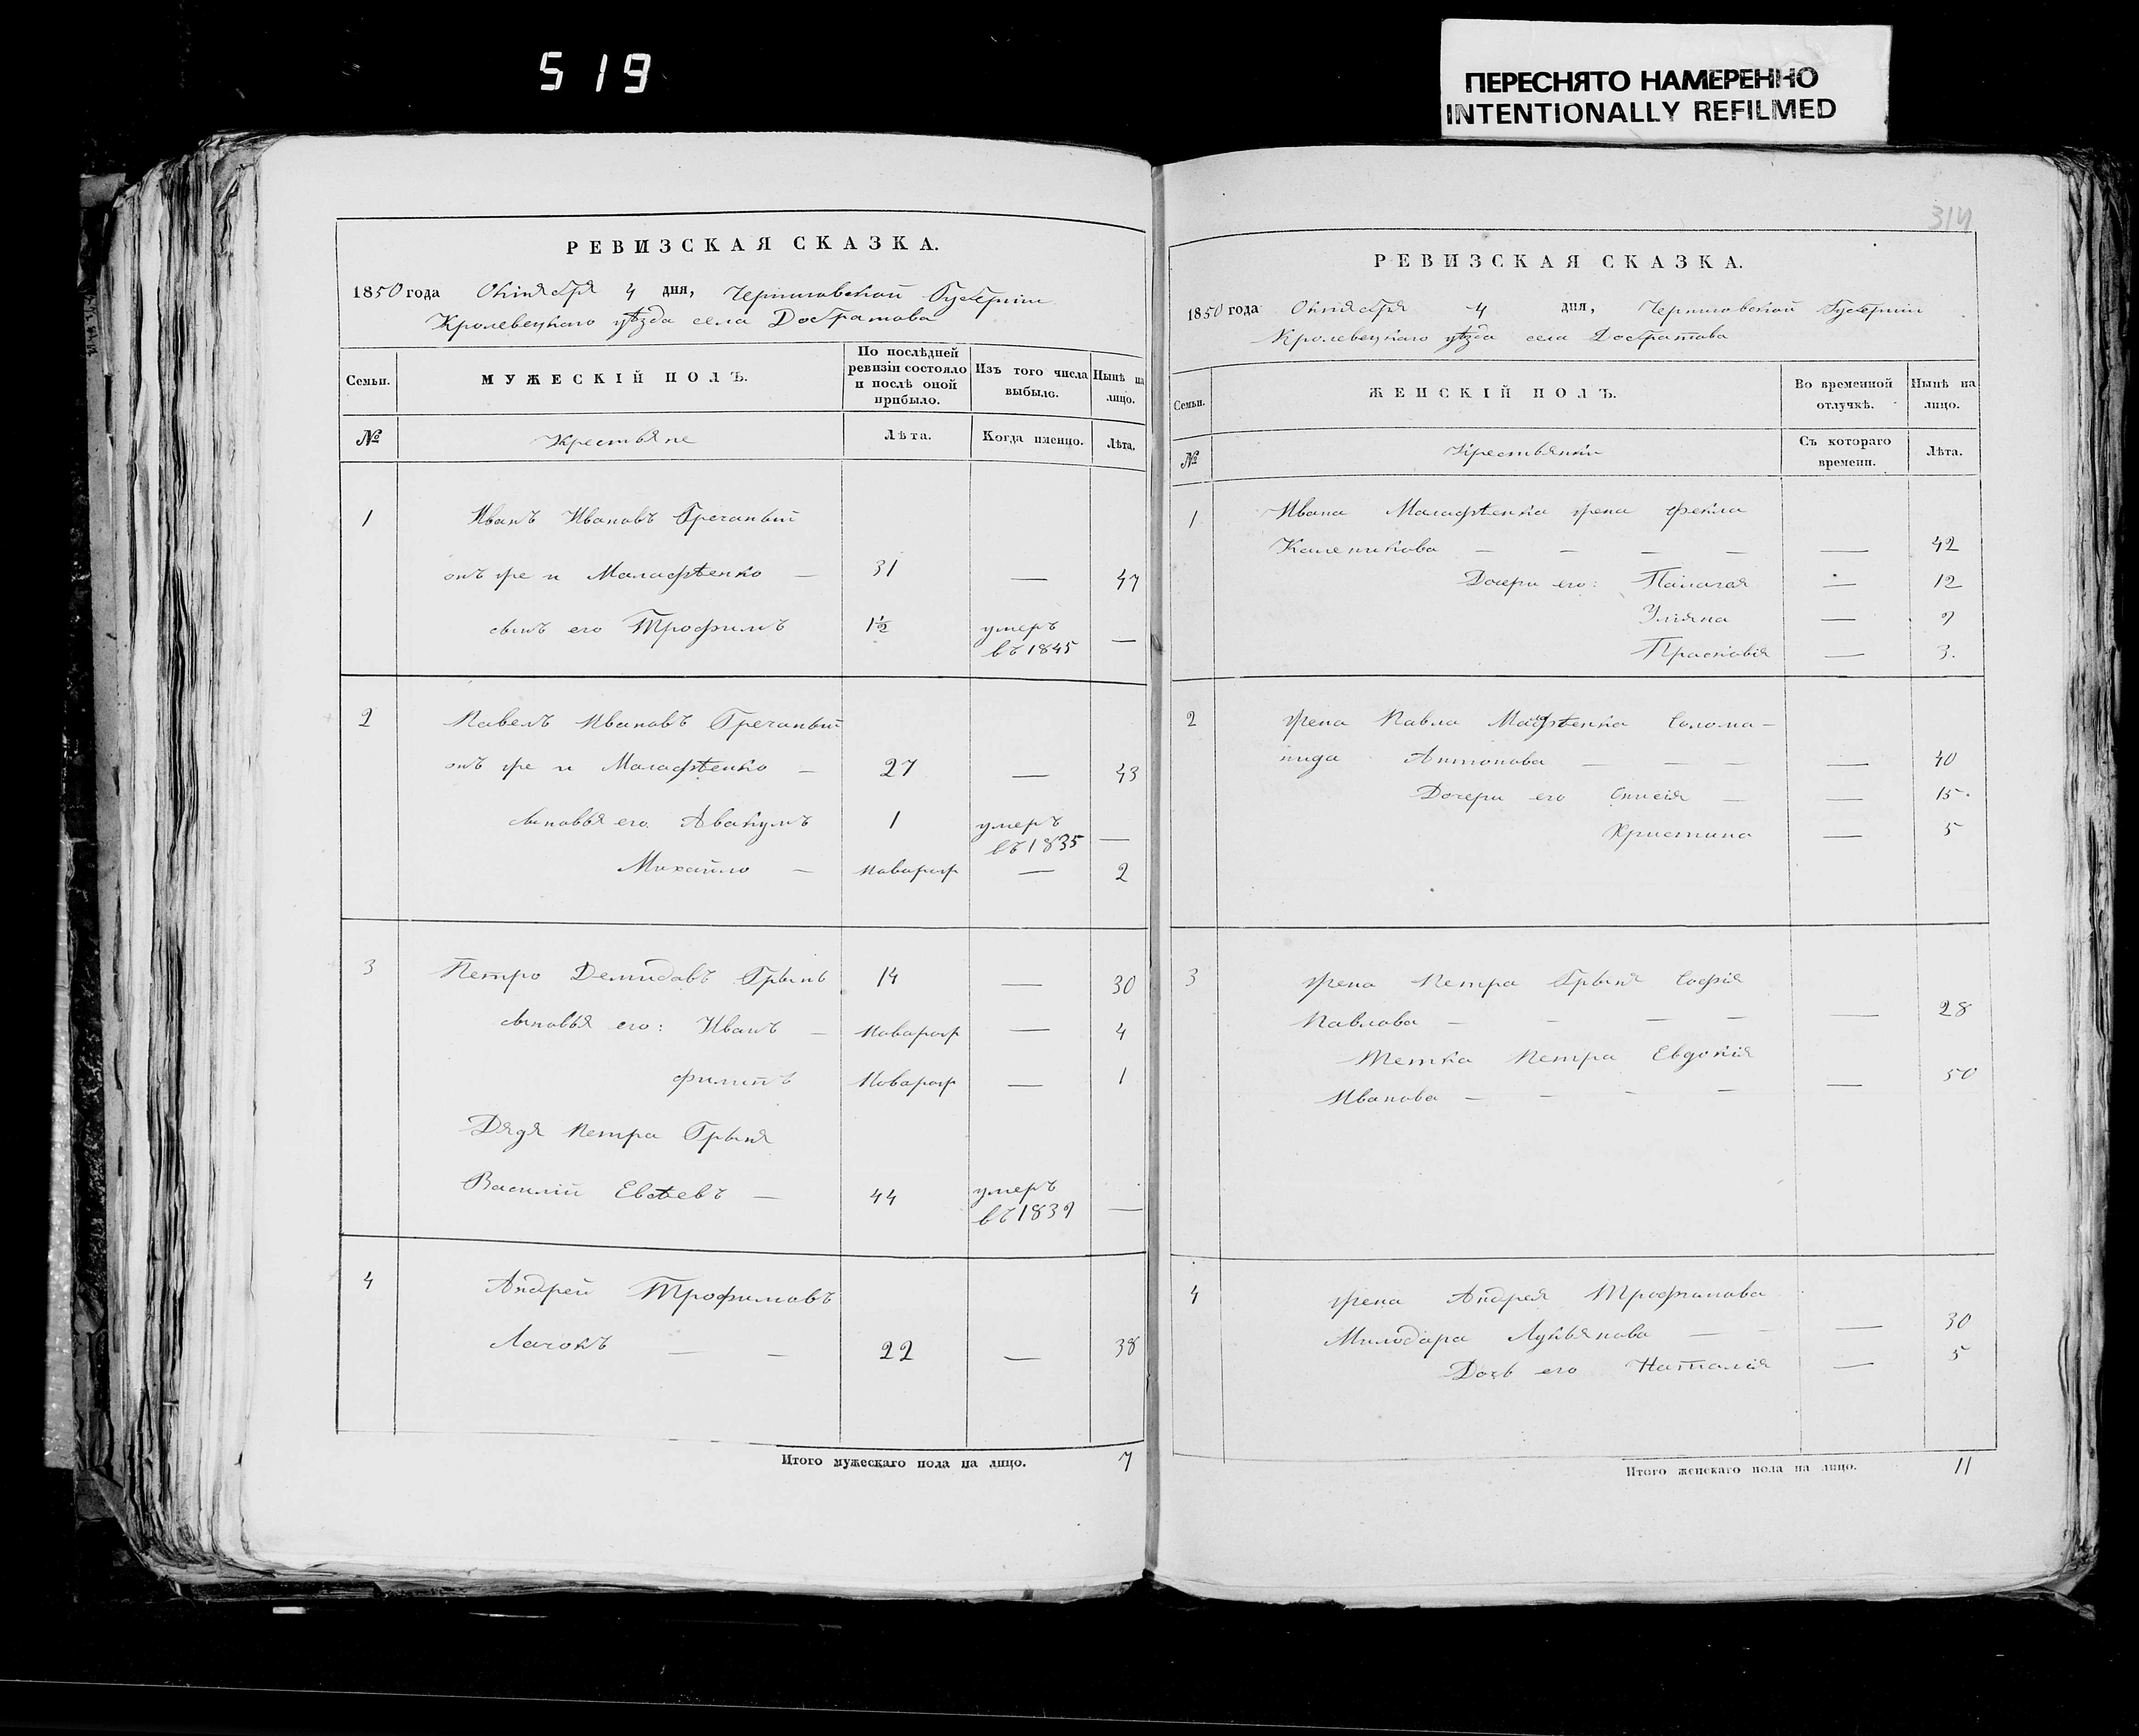 519
ПЕРЕСНЯТО НАМЕРЕННО
INTENTIONALLY REFILMED
314
РЕВИЗСКАЯ СКАЗКА.
1850 года Октября 4 дня, Черниговской Губерніи
Кролевецкаго уѣзда села Добратова
Семьи.
МУЖЕСКІЙ ПОЛЪ.
По послѣдней ревизіи состояло и послѣ оной прибыло.
Изъ того числа выбыло.
Нынѣ на лицо.
№
Крестьяне
Лѣта.
Когда именно.
Лѣта.
1 Иванъ Ивановъ Гречаный
онъ же и Малафѣенко — 31 — 47
сынъ его Трофимъ 1½ умеръ въ 1845 —
2 Павелъ Ивановъ Гречаный
онъ же и Малафѣенко — 27 — 43
сыновья его Авакумъ 1 умеръ въ 1835 —
Михайло — новорож — 2
3 Петро Демидовъ Грынь 14 — 30
сыновья его: Иванъ — новорож — 4
Филипъ новорож — 1
Дядя Петра Грыня
Василій Евсѣевъ — 44 умеръ въ 1839 —
4 Андрей Трофимовъ
Лачокъ — — 22 — 38
Итого мужескаго пола на лицо. 7
РЕВИЗСКАЯ СКАЗКА.
1850 года Октября 4 дня, Черниговской Губерніи
Кролевецкаго уѣзда села Добратова
Семьи.
ЖЕНСКІЙ ПОЛЪ.
Во временной отлучкѣ.
Нынѣ на лицо.
№
Крестьянки
Съ котораго времени.
Лѣта.
1 Ивана Малафѣенка жена Фекла
Каленикова — — — — — 42
Дочери его: Палагея — 12
Уліяна — 9
Прасковія — 3.
2 Жена Павла Малафѣенка Солома-
нида Антонова — — — — 40
Дочери его — — 15.
Христина — 5
3 Жена Петра Грыня Софія
Павлова — — — — — 28
Тетка Петра Евдокія
Иванова — — — — — 50
4 Жена Андрея Трофимова
Милодара Лукьянова — — — 30
Дочь его Наталія — 5
Итого женскаго пола на лицо. 11